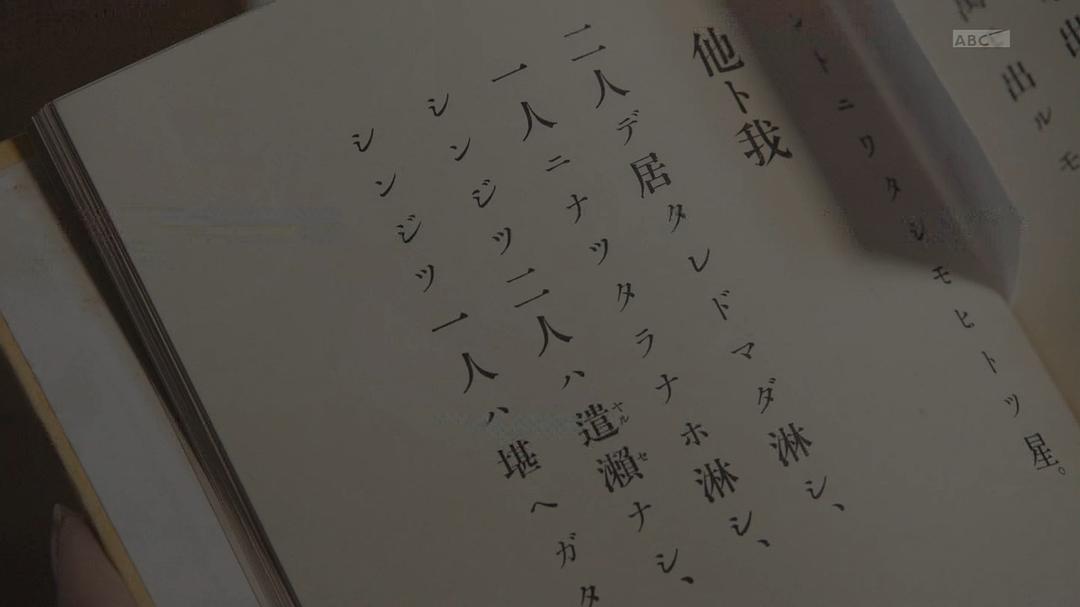 出ルモ
ントニワタシモヒトツ星。
他ト我
二人デ居タレドマダ淋シ、
一人ニナツタラナホ淋シ、
シンジツ二人ハ遣瀬ナシ、
シンジツ一人ハ堪ヘガタ
ヤルセ
ABC